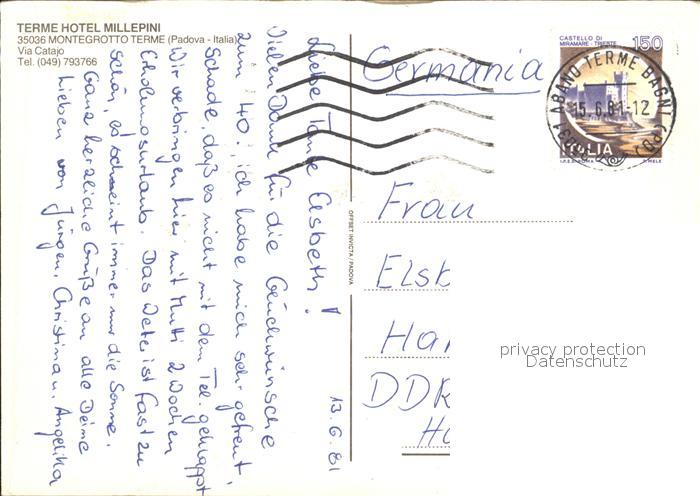 TERME HOTEL MILLEPINI
35036 MONTEGROTTO TERME (Padova - Italia)
Via Catajo
Tel. (049) 793766
13.6.81
Liebe Tante Elsbeth!
Vielen Dank für die Glückwünsche
zum 40., ich habe mich sehr gefreut,
Schade, daß es nicht mit dem Tel. geklappt
Wir verbringen hier mit Mutti 2 Wochen
Erholungsurlaub. Das Weter ist fast zu
schön, es scheint immer nur die Sonne.
Ganz herzliche Grüße an alle Deine
Lieben von Jürgen, Christina u. Angelika
OFFSET INVICTA / PADOVA
CASTELLO DI
MIRAMARE - TRIESTE
150
ITALIA
I.P.Z.S. ROMA
ABANO TERME BAGNI (PD)
15.6.81-12
Germania
Frau
Elsb
Har
DDR
privacy protection
Datenschutz